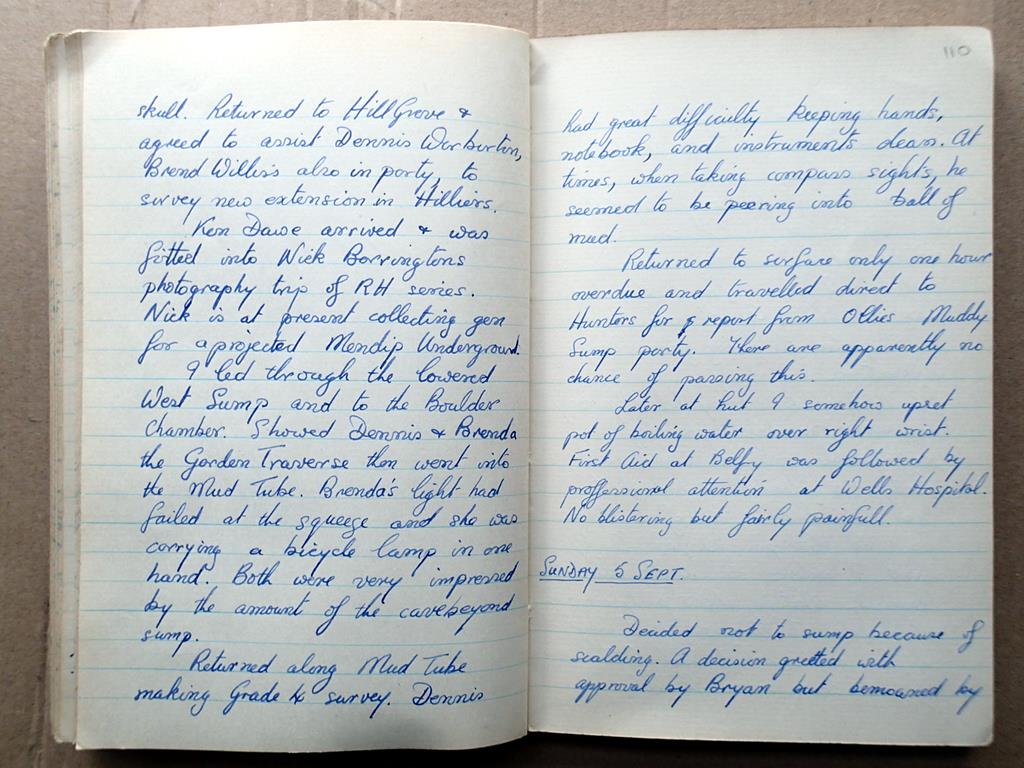 skull. Returned to HillGrove &
agreed to assist Dennis Warburton,
Brend Willis's also in party, to
survey new extension in Hilliers.
Ken Dawe arrived & was
fitted into Nick Barringtons
photography trip of RH series.
Nick is at present collecting gen
for a projected Mendip Underground.
I led through the lowered
West Sump and to the Boulder
Chamber. Showed Dennis & Brenda
the Gorden Traverse then went into
the Mud Tube. Brenda's light had
failed at the squeeze and she was
carrying a bicycle lamp in one
hand. Both were very impressed
by the amount of the cave beyond
sump.
Returned along Mud Tube
making Grade 4 survey. Dennis
110
had great difficulty keeping hands,
notebook, and instruments clean. At
times, when taking compass sights, he
seemed to be peering into ball of
mud.
Returned to surface only one hour
overdue and travelled direct to
Hunters for report from Ollies Muddy
Sump party. There are apparently no
chance of passing this.
Later at hut I somehow upset
pot of boiling water over right wrist.
First Aid at Belfry was followed by
proffessional attention at Wells Hospital.
No blistering but fairly painfull.
SUNDAY 5 SEPT.
Decided not to sump because of
scalding. A decision greeted with
approval by Bryan but bemoaned by